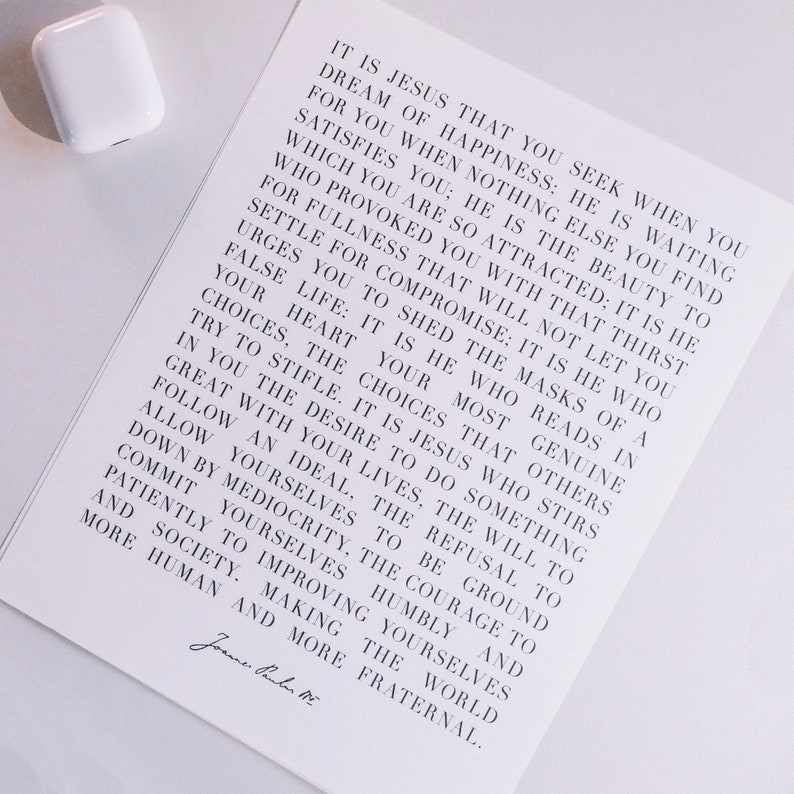 IT IS JESUS THAT YOU SEEK WHEN YOU
DREAM OF HAPPINESS; HE IS WAITING
FOR YOU WHEN NOTHING ELSE YOU FIND
SATISFIES YOU; HE IS THE BEAUTY TO
WHICH YOU ARE SO ATTRACTED; IT IS HE
WHO PROVOKED YOU WITH THAT THIRST
FOR FULLNESS THAT WILL NOT LET YOU
SETTLE FOR COMPROMISE; IT IS HE WHO
URGES YOU TO SHED THE MASKS OF A
FALSE LIFE; IT IS HE WHO READS IN
YOUR HEART YOUR MOST GENUINE
CHOICES, THE CHOICES THAT OTHERS
TRY TO STIFLE. IT IS JESUS WHO STIRS
IN YOU THE DESIRE TO DO SOMETHING
GREAT WITH YOUR LIVES, THE WILL TO
FOLLOW AN IDEAL, THE REFUSAL TO
ALLOW YOURSELVES TO BE GROUND
DOWN BY MEDIOCRITY, THE COURAGE TO
COMMIT YOURSELVES HUMBLY AND
PATIENTLY TO IMPROVING YOURSELVES
AND SOCIETY, MAKING THE WORLD
MORE HUMAN AND MORE FRATERNAL.
Joannes Paulus